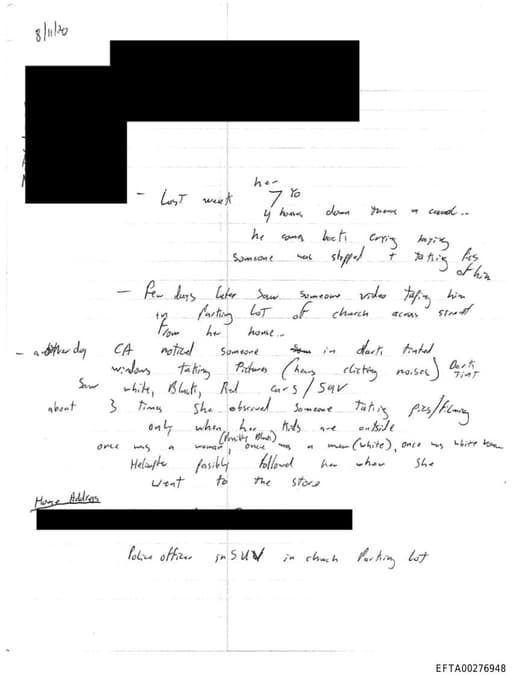 8/11/20
her
- Last week 7 Yo
4 homes down threw a ...
he comes back crying saying
someone was stopped + taking Pics
of him
- Few days later saw someone video taping him
in Parking Lot of church across street
From her home...
- another day CA noticed someone in dark tinted
windows taking Pictures (hears clicking noises) Dark
Tint
Saw white, Black, Red cars/SUV
about 3 times she observed someone taking pics/Filming
only when her kids are outside
(Possibly Black)
once was a woman, once was a man (white), once was white
Helicopter possibly followed her when she
went to the store
Home Address
Police officer in SUV in church Parking Lot
EFTA00276948